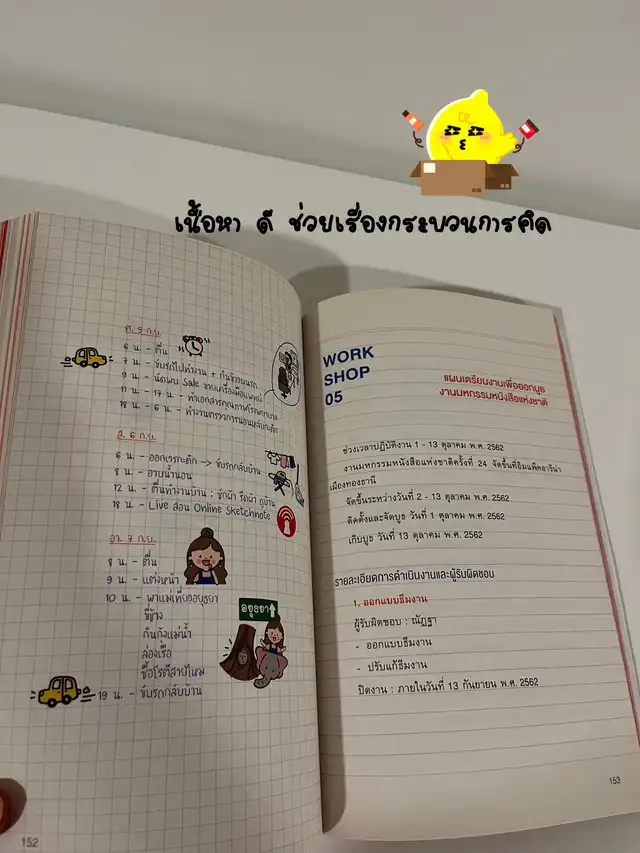 เนื้อหา ดี ช่วยเรื่องกระบวนการคิด
ศ. 5 ก.ย.
6 น. - ตื่น
7 น. - ขับรถไปทำงาน + กินข้าวบนรถ
9 น. - นัดพบ Sale ขายเครื่องมือแพทย์
11 น. - 17 น. - ทำเอกสารคุณภาพโรงพยาบาล
18 น. - 6 น. - ทำงานตรวจการนอนหลับกะดึก
ส. 6 ก.ย.
6 น. - ออกเวรกะดึก -> ขับรถกลับบ้าน
8 น. - อาบน้ำนอน
12 น. - ตื่นทำงานบ้าน : ซักผ้า รีดผ้า ถูบ้าน
18 น. - Live สอน Online Sketchnote
อา. 7 ก.ย.
8 น. - ตื่น
9 น. - แต่งหน้า
10 น. - พาแม่เที่ยวอยุธยา
ขี่ช้าง
กินกุ้งแม่น้ำ
ล่องเรือ
ซื้อโรตีสายไหม
อยุธยา
19 น. - ขับรถกลับบ้าน
152
WORK
SHOP
05
แผนเตรียมงานเพื่อออกบูธ
งานมหกรรมหนังสือแห่งชาติ
ช่วงเวลาปฏิบัติงาน 1 - 13 ตุลาคม พ.ศ. 2562
งานมหกรรมหนังสือแห่งชาติครั้งที่ 24 จัดขึ้นที่อิมแพ็คอารีน่า
เมืองทองธานี
จัดขึ้นระหว่างวันที่ 2 - 13 ตุลาคม พ.ศ. 2562
ติดตั้งและจัดบูธ วันที่ 1 ตุลาคม พ.ศ. 2562
เก็บบูธ วันที่ 13 ตุลาคม พ.ศ. 2562
รายละเอียดการดำเนินงานและผู้รับผิดชอบ
1. ออกแบบธีมงาน
ผู้รับผิดชอบ : ณัฏฐา
- ออกแบบธีมงาน
- ปรับแก้ธีมงาน
ปิดงาน : ภายในวันที่ 13 กันยายน พ.ศ. 2562
153